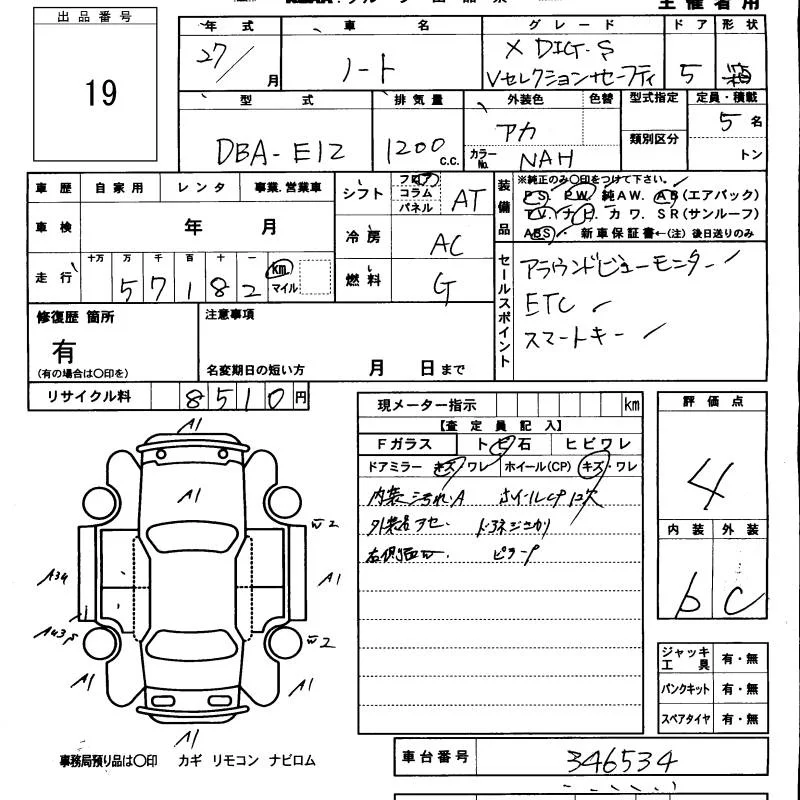 主催者用
出品番号
19
年式 車名 グレード ドア 形状
27/ 月 ノート X DIG-S Vセレクションセーフティ 5 箱
型式 排気量 外装色 色替 型式指定 定員・積載
DBA-E12 1200 C.C. アカ 類別区分 5名
カラーNo. NAH トン
車歴 自家用 レンタ 事業、営業車
シフト フロア コラム パネル AT
装備品 ※純正のみ〇印をつけて下さい。
PS. PW. 純AW. AB(エアバック)
TV. ナビ. カワ. SR(サンルーフ)
ABS. 新車保証書←(注)後日送りのみ
車検 年 月
冷房 AC
走行 十万 万 千 百 十 一
57182 km. マイル
燃料 G
セールスポイント
アラウンドビューモニター ✓
ETC ✓
スマートキー ✓
修復歴 箇所
有
(有の場合は〇印を)
注意事項
名変期日の短い方 月 日まで
リサイクル料 8510円
現メーター指示 km
【査定員記入】
Fガラス トビ石 ヒビワレ
ドアミラー キズ・ワレ ホイール(CP) キズ・ワレ
内装汚れ.A ホイールCP欠
外装色アセ.
右側面w.
評価点
4
内装 外装
b C
A1
A1
w2
A34
A1
w2
A1
A1
A1
ジャッキ工具 有・無
パンクキット 有・無
スペアタイヤ 有・無
事務局預り品は〇印 カギ リモコン ナビロム
車台番号 346534